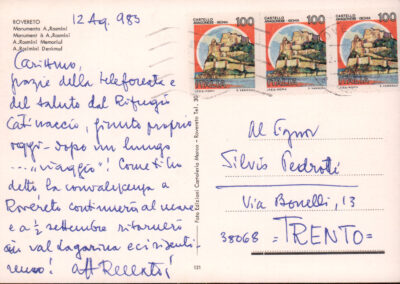 ROVERETO
Monumento A. Rosmini
Monument à A. Rosmini
A. Rosmini Memorial
A. Rosmini Denkmal
12 Ag. 983
Carissimo,
grazie della telefonata e
del saluto dal Rifugio
Catinaccio, giunto proprio
oggi - dopo un lungo
..."viaggio"! Come ti ho
detto la convalescenza a
Rovereto continuerà al mare
e a ½ settembre ritornerò
in val Lagarina e ci risenti-
remo!
CASTELLO ARAGONESE ISCHIA 100
CASTELLO ARAGONESE ISCHIA 100
CASTELLO ARAGONESE ISCHIA 100
Al Signor
Silvio Pedrotti
Via Bonelli, 13
38068 = TRENTO =
Foto Edizioni Cartoleria Manzo - Rovereto Tel.
121